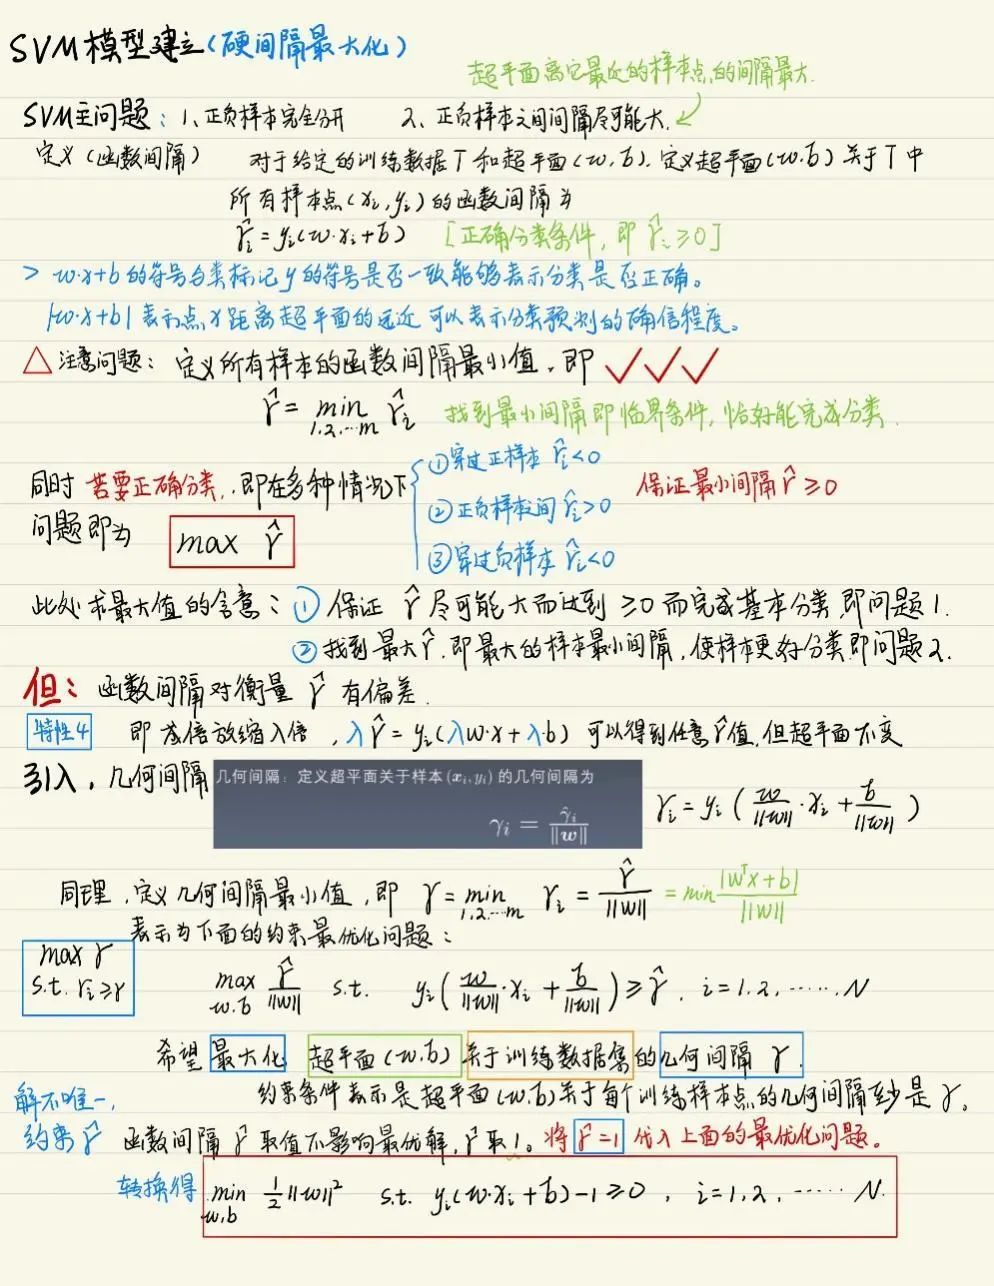 SVM模型建立(硬间隔最大化)
超平面离它最近的样本点的间隔最大.
SVM主问题: 1、正负样本完全分开 2、正负样本之间间隔尽可能大.
定义(函数间隔) 对于给定的训练数据T和超平面(w,b).定义超平面(w.b)关于T中
所有样本点(xi,yi)的函数间隔为
γ̂i = yi(w·xi+b) [正确分类条件,即 γ̂i≥0]
> w·x+b的符号与类标记y的符号是否一致能够表示分类是否正确。
|w·x+b|表示点x距离超平面的远近 可以表示分类预测的确信程度。
△注意问题: 定义所有样本的函数间隔最小值.即 ✓✓✓
γ̂ = min γ̂i 找到最小间隔即临界条件,恰好能完成分类.
1.2.…m
同时 若要正确分类,即在多种情况下 ①穿过正样本 γ̂i<0 保证最小间隔γ̂≥0
②正负样本间 γ̂i>0
问题即为 max γ̂
③穿过负样本 γ̂i<0
此处求最大值的含意: ①保证 γ̂尽可能大而达到≥0而完成基本分类 即问题1.
②找到最大γ̂.即最大的样本最小间隔,使样本更好分类即问题2.
但: 函数间隔对衡量 γ̂ 有偏差.
特性4 即成倍放缩λ倍 ,λγ̂ = yi(λw·x+λ·b) 可以得到任意γ̂值,但超平面不变
引入,几何间隔 几何间隔: 定义超平面关于样本(xi,yi)的几何间隔为
γi = γ̂i/‖w‖ γi = yi(w/‖w‖·xi + b/‖w‖)
同理,定义几何间隔最小值,即 γ = min γi = γ̂/‖w‖ = min |wᵀx+b|/‖w‖
1,2…m
表示为下面的约束最优化问题:
max γ
s.t. γi≥γ
max γ̂/‖w‖ s.t. yi(w/‖w‖·xi + b/‖w‖)≥γ̂. i=1.2.……N
w.b
希望 最大化 超平面(w.b) 关于训练数据集的几何间隔 γ.
约束条件表示是超平面(w.b)关于每个训练样本点的几何间隔至少是γ。
解不唯一,
约束γ̂ 函数间隔γ̂取值不影响最优解,γ̂取1。将γ̂=1代入上面的最优化问题。
转换得 min ½‖w‖² s.t. yi(w·xi+b)-1≥0 , i=1,2,……N.
w,b